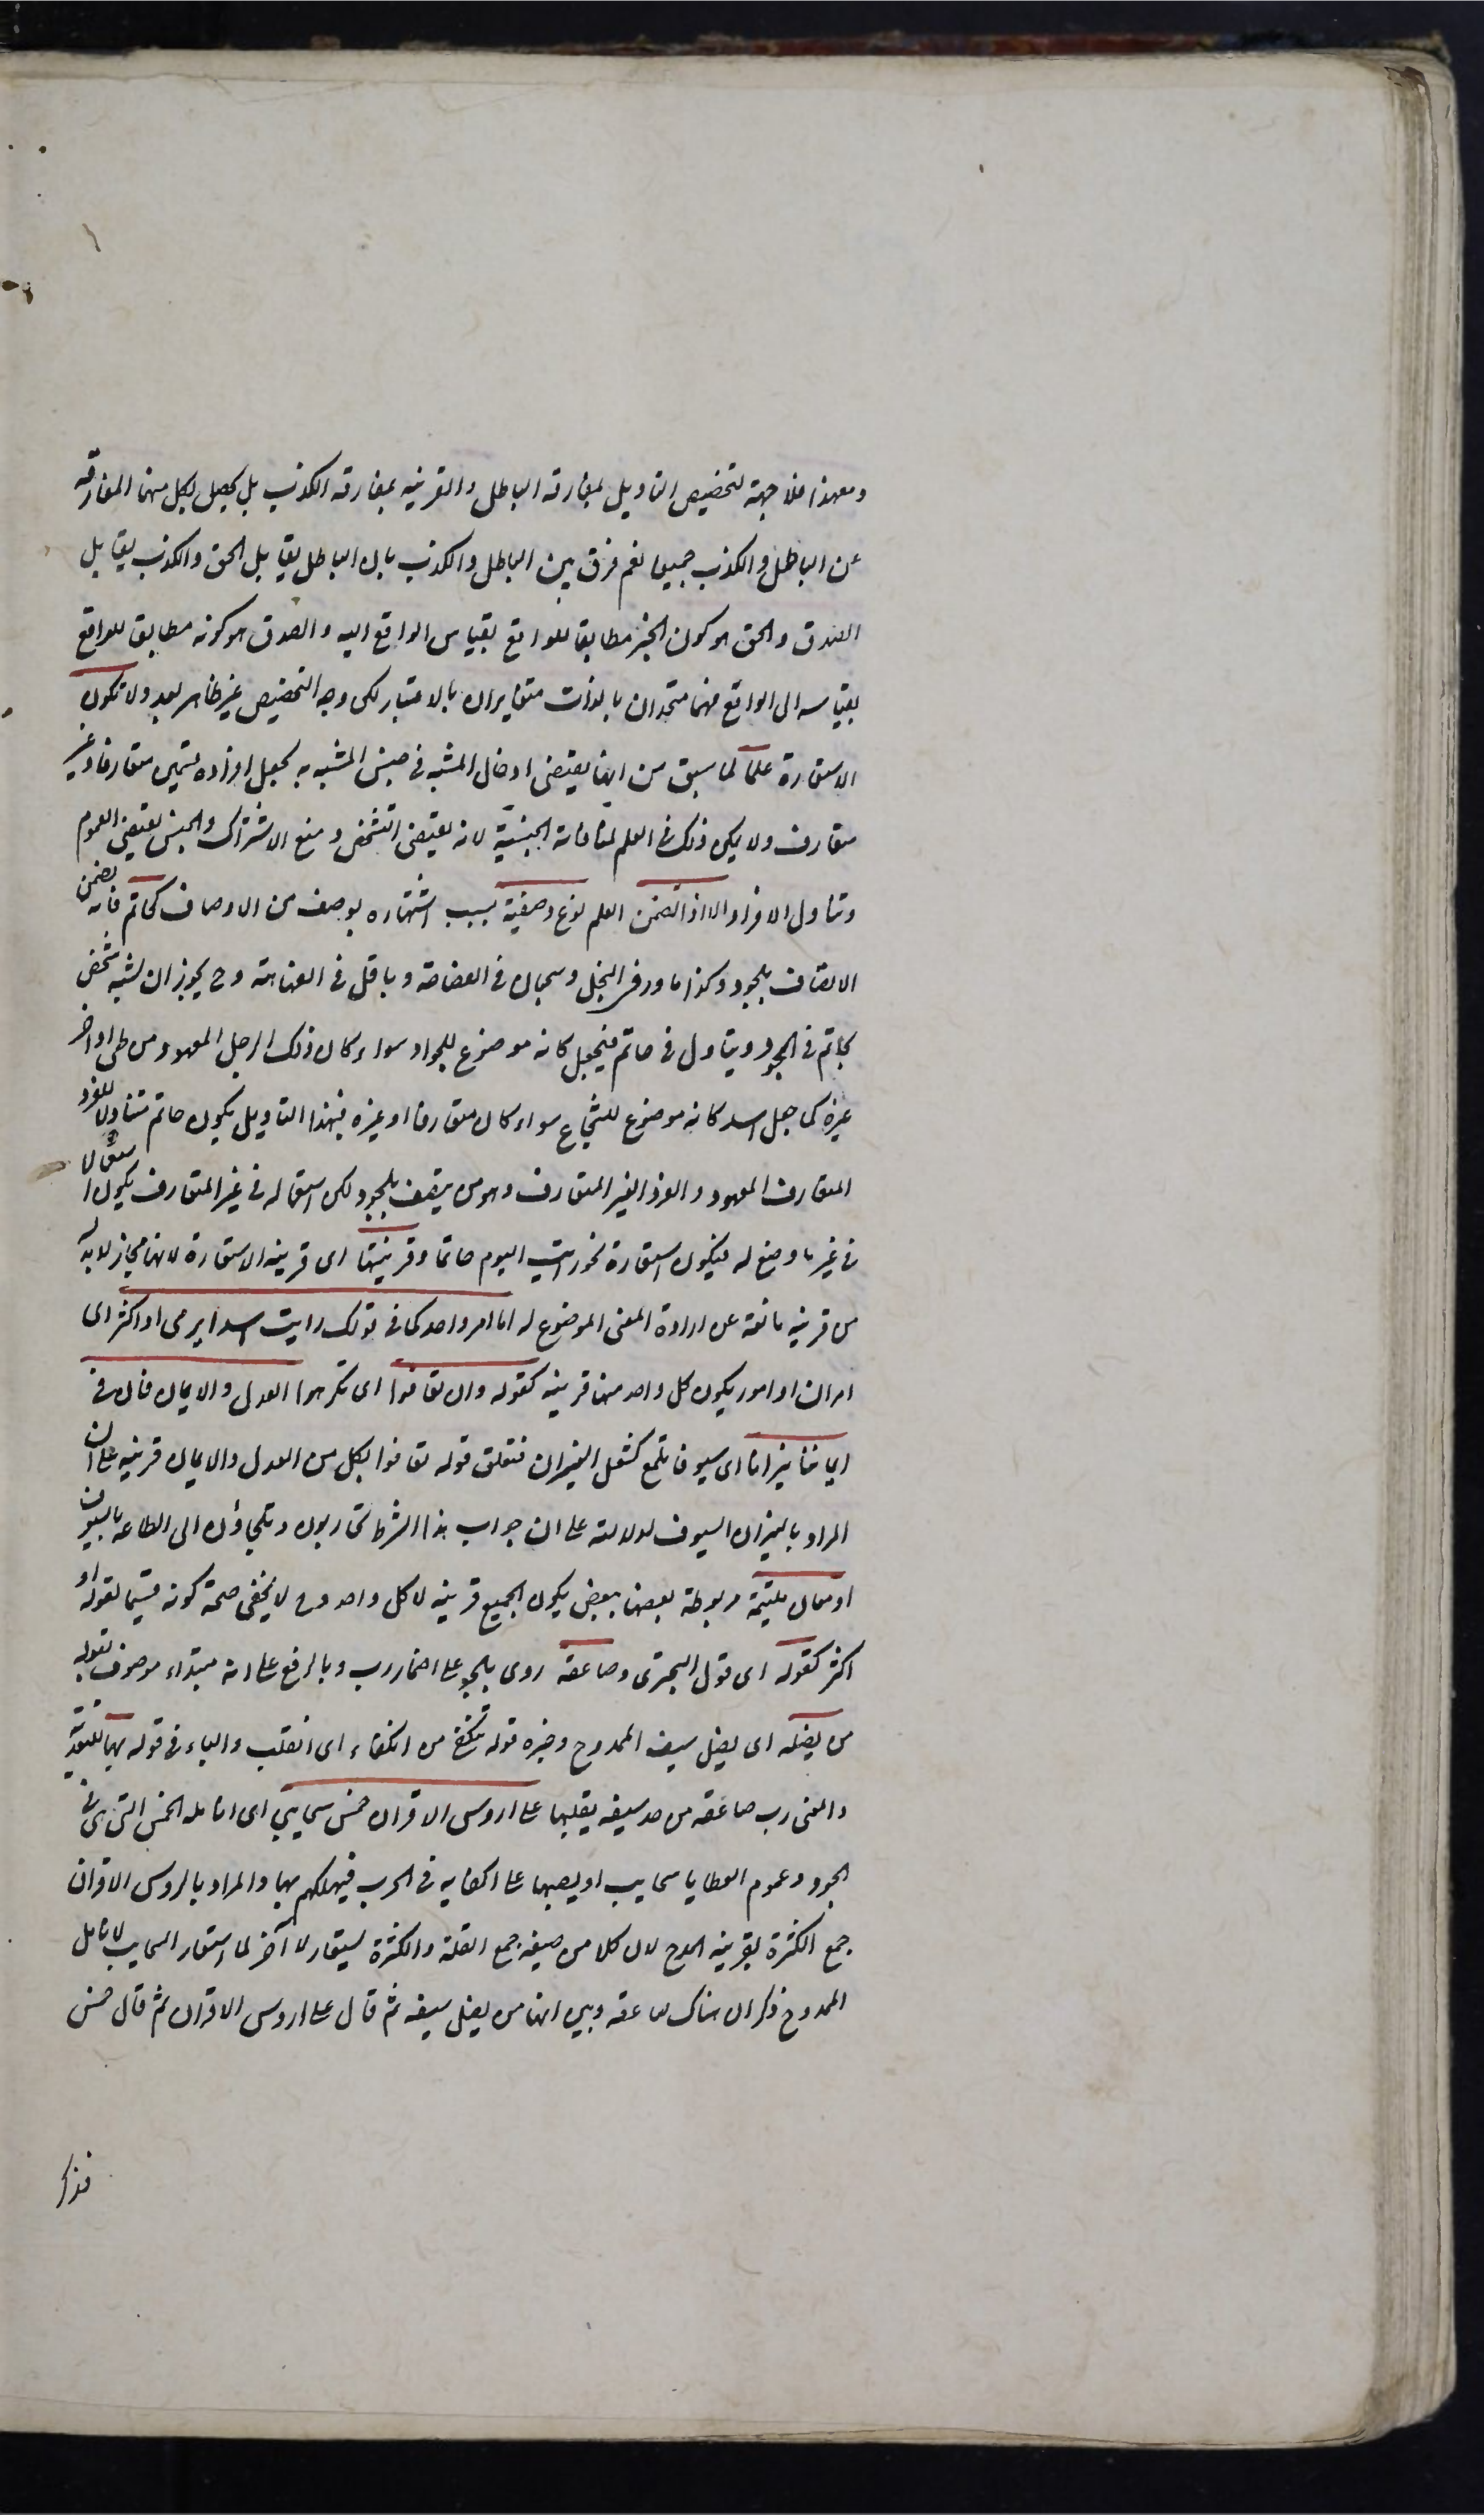 ومع هذا فلا جهة لتخصيص التاويل بمفارقة الباطل والقرينة بمفارقة الكذب بل يحصل بكل منهما المفارقة
عن الباطل والكذب جميعا نعم فرق بين الباطل والكذب بان الباطل يقابل الحق والكذب يقابل
الصدق والحق هو كون الخبر مطابقا للواقع بقياس الواقع اليه والصدق هو كونه مطابقا للواقع
بقياسه الى الواقع فهما متحدان بالذات متغايران بالاعتبار لكن وجه التخصيص غير ظاهر بعد ولا تكون
الاستعارة علما لما سبق من انها يقتضى ادخال المشبه فى جنس المشبه به بجعل افراده قسمين متعارفا وغير
متعارف ولا يمكن ذلك فى العلم لمنافاته الجنسية لانه يقتضى التشخص ومنع الاشتراك والجنس يقتضى العموم
وتناول الافراد الا اذا تضمن العلم نوع وصفية بسبب اشتهاره بوصف من الاوصاف كحاتم فانه تضمن
الاتصاف بالجود وكذا مادر فى البخل وسحبان فى الفصاحة وباقل فى الفهاهة وح يجوز ان يشبه شخص
بحاتم فى الجود ويتاول فى حاتم فيجعل كانه موضوع للجواد سواء كان ذلك الرجل المعهود من طى او اخر
غيره كما جعل اسد كانه موضوع للشجاع سواء كان متعارفا او غيره فبهذا التاويل يكون حاتم متناولا للفرد
المتعارف المعهود والفرد الغير المتعارف وهو من يتصف بالجود لكن استعماله فى غير المتعارف يكون استعمالا
فى غير ما وضع له فيكون استعارة نحو رايت اليوم حاتما وقرينتها اى قرينة الاستعارة لانها مجاز لابد له
من قرينة مانعة عن ارادة المعنى الموضوع له اما امر واحد كما فى قولك رايت اسدا يرمى او اكثر اى
امران او امور يكون كل واحد منها قرينة كقوله وان تعافوا اى تكرهوا العدل والايمان فان فى
ايماننا نيرانا اى سيوفا تلمع كشعل النيران فتعلق قوله تعافوا بكل من العدل والايمان قرينة على ان
المراد بالنيران السيوف لدلالته على ان جواب هذا الشرط تحاربون وتلجاؤن الى الطاعة بالسيوف
او معان ملتئمة مربوطة بعضها ببعض يكون الجميع قرينة لا كل واحد وح لا يخفى صحة كونه قسيما لقوله او
اكثر كقوله اى قول البحترى وصاعقة روى بالجر على اضمار رب وبالرفع على انه مبتداء موصوف بقوله
من نصله اى نصل سيف الممدوح وخبره قوله تنكفى من انكفاء اى انقلب والباء فى قوله بها للتعدية
والمعنى رب صاعقة من حد سيفه يقلبها على ارؤس الاقران خمس سحايب اى انامله الخمس التى هى فى
الجود وعموم العطايا سحايب او يصبها على اكفايه فى الحرب فيهلكهم بها والمراد بالروس الاقران
جمع الكثرة بقرينة المدح لان كلا من صيغة جمع القلة والكثرة يستعار للآخر لما استعار السحايب لانامل
الممدوح ذكر ان هناك صاعقة وبين انها من نصل سيفه ثم قال على اروس الاقران ثم قال خمس
فذكر